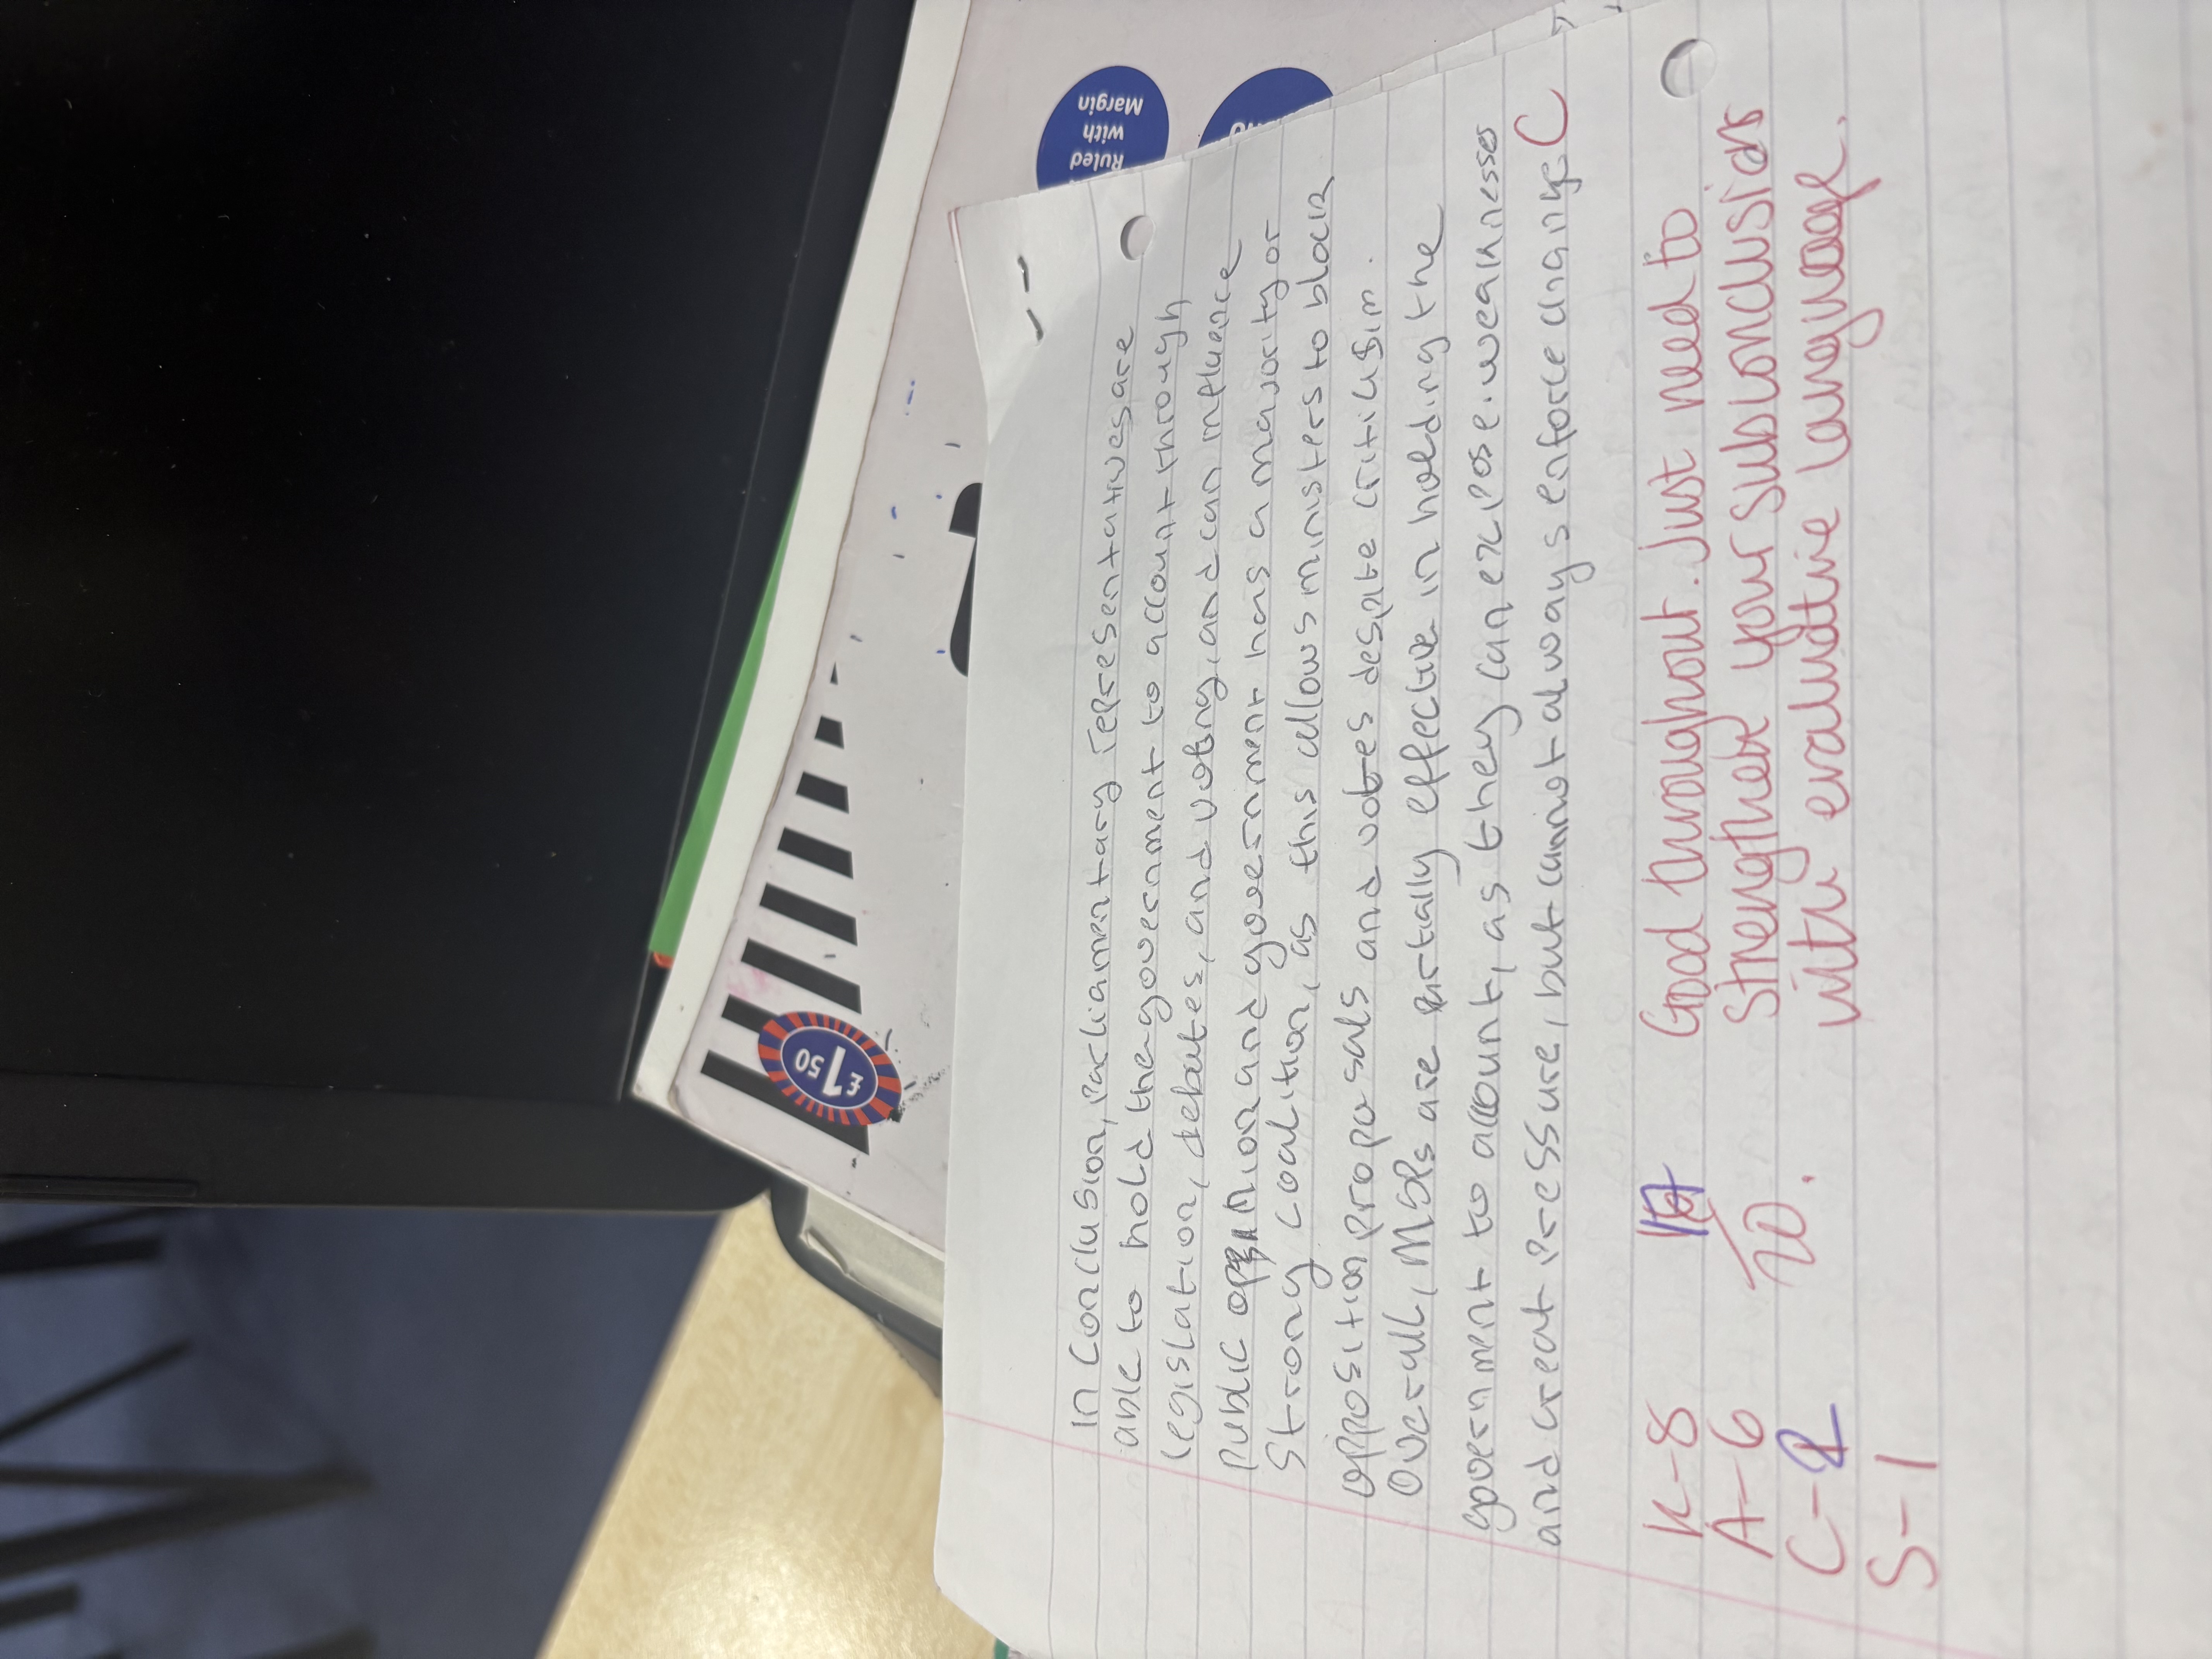 In Conclusion, parliamentary representatives are
able to hold the government to account through
legislation, debates, and voting, and can influence
public opinion and government has a majority or
strong coalition, as this allows ministers to block
opposition proposals and votes despite critisism.
Overall, MSPs are partially effective in holding the
government to account, as they can expose weaknesses
and creat pressure, but cannot always enforce change. C
K-8
A-6
C-2
S-1
20.
Good throughout. Just need to
strengthen your subconclusions
with evaluative language.
£1.50
Ruled
with
Margin